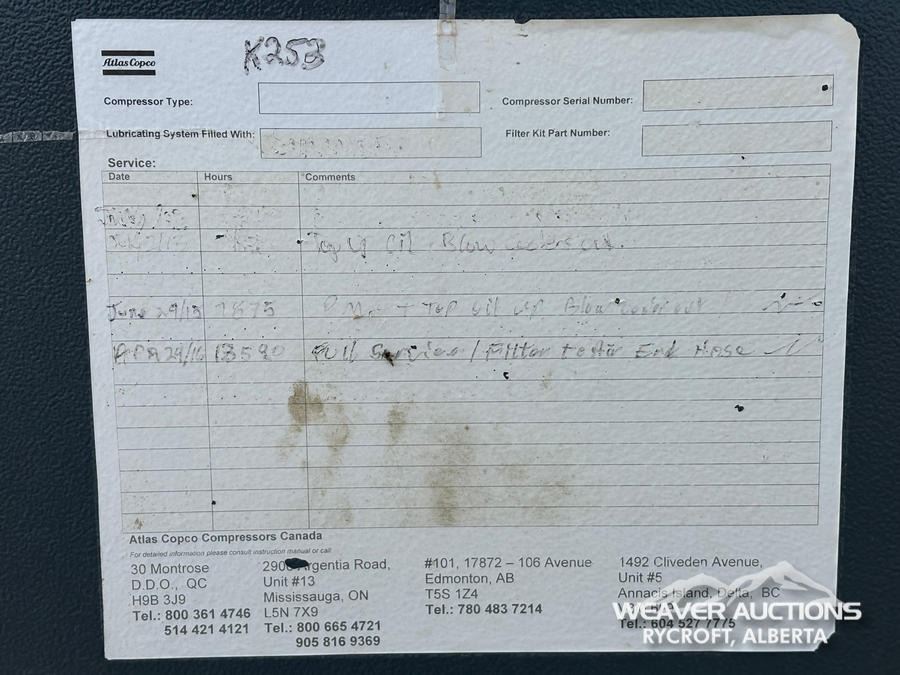 Atlas Copco
K253
Compressor Type:
Compressor Serial Number:
Lubricating System Filled With:
Filter Kit Part Number:
Service:
Date Hours Comments
Top up oil Blow coolers out.
June 29/15 7875 + Top oil up Blow cooler out
APR 29/16 Full Service / Filter to Air End Hose
Atlas Copco Compressors Canada
For detailed information please consult instruction manual or call
30 Montrose
D.D.O., QC
H9B 3J9
Tel.: 800 361 4746
514 421 4121
2900 Argentia Road,
Unit #13
Mississauga, ON
L5N 7X9
Tel.: 800 665 4721
905 816 9369
#101, 17872 – 106 Avenue
Edmonton, AB
T5S 1Z4
Tel.: 780 483 7214
1492 Cliveden Avenue,
Unit #5
Annacis Island, Delta, BC
Tel.: 604 527 7775
WEAVER AUCTIONS
RYCROFT, ALBERTA